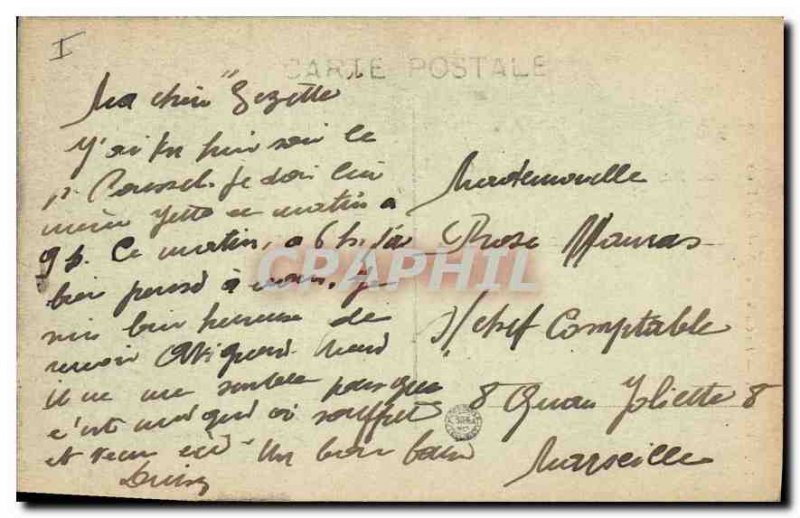 I
CARTE POSTALE
Ma chère Gezette
J'ai vu hier soir le
P. Roussel. Je dois lui
mener Yette ce matin à
9 h. Ce matin, à 6 h. j'ai
bien pensé à vous. Je
suis bien heureuse de
revoir Avignon. Mais
il ne me semble pas que
c'est moi qui ai souffert
et vécu ici. Un bon baiser
Mademoiselle
Rose Mauras
s/chef Comptable
8 Quai Joliette 8
Marseille
CPAPHIL